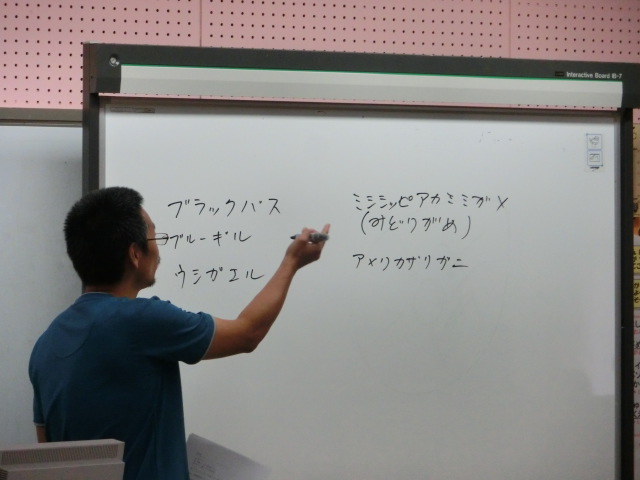 Interactive Board IB-7
ブラックバス
ブルーギル
ウシガエル
ミシシッピアカミミガメ
(みどりがめ)
アメリカザリガニ